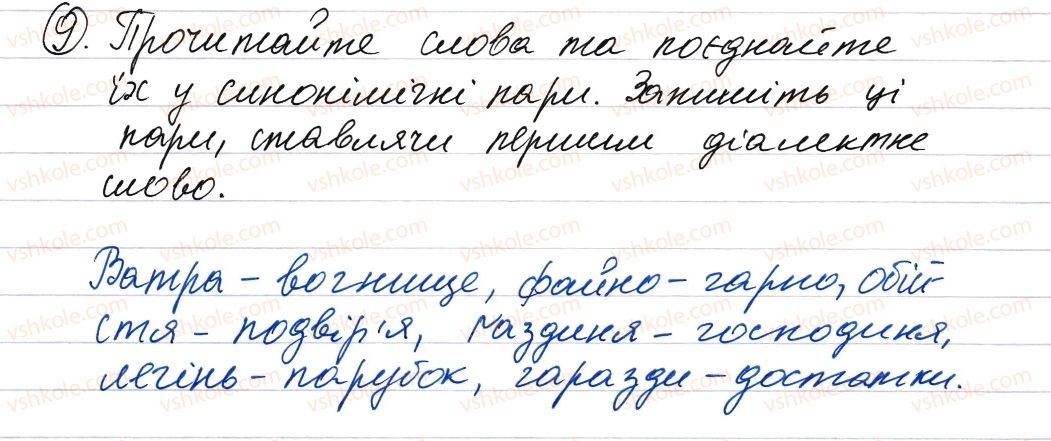 9. Прочитайте слова та поєднайте
їх у синонімічні пари. Запишіть ці
пари, ставлячи першим діалектне
слово.
Ватра – вогнище, файно – гарно, обій
стя – подвір'я, ґаздиня – господиня,
легінь – парубок, гаразди – достатки.